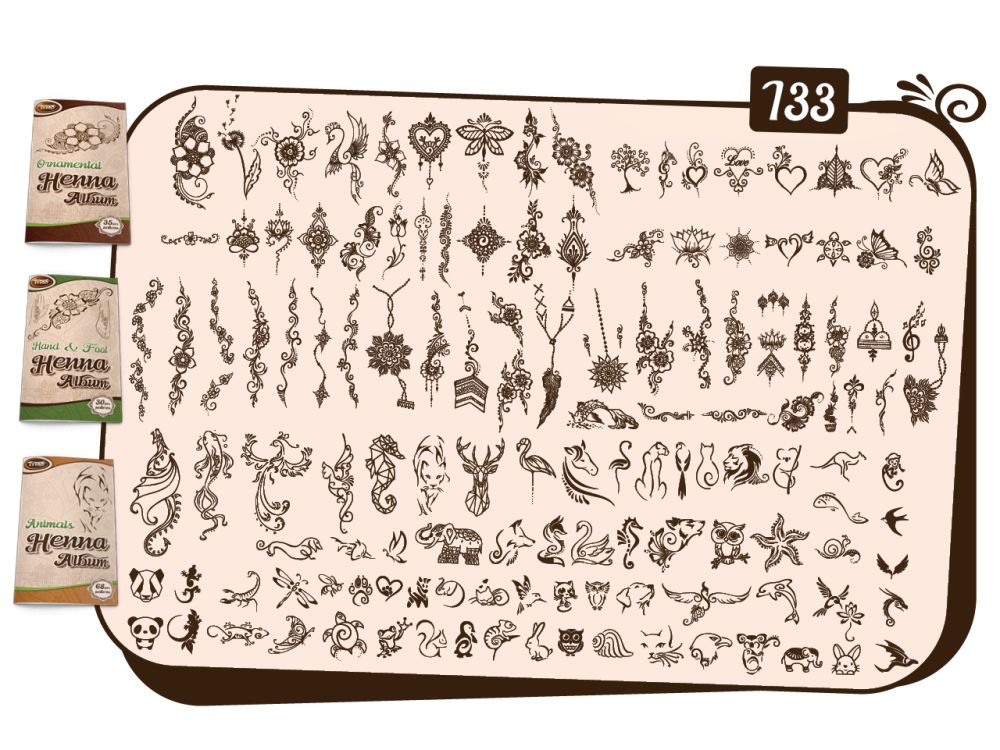 133
Ornamental
Henna
Album
35
Love
Hand & Foot
Henna
Album
30
Animals
Henna
Album
68